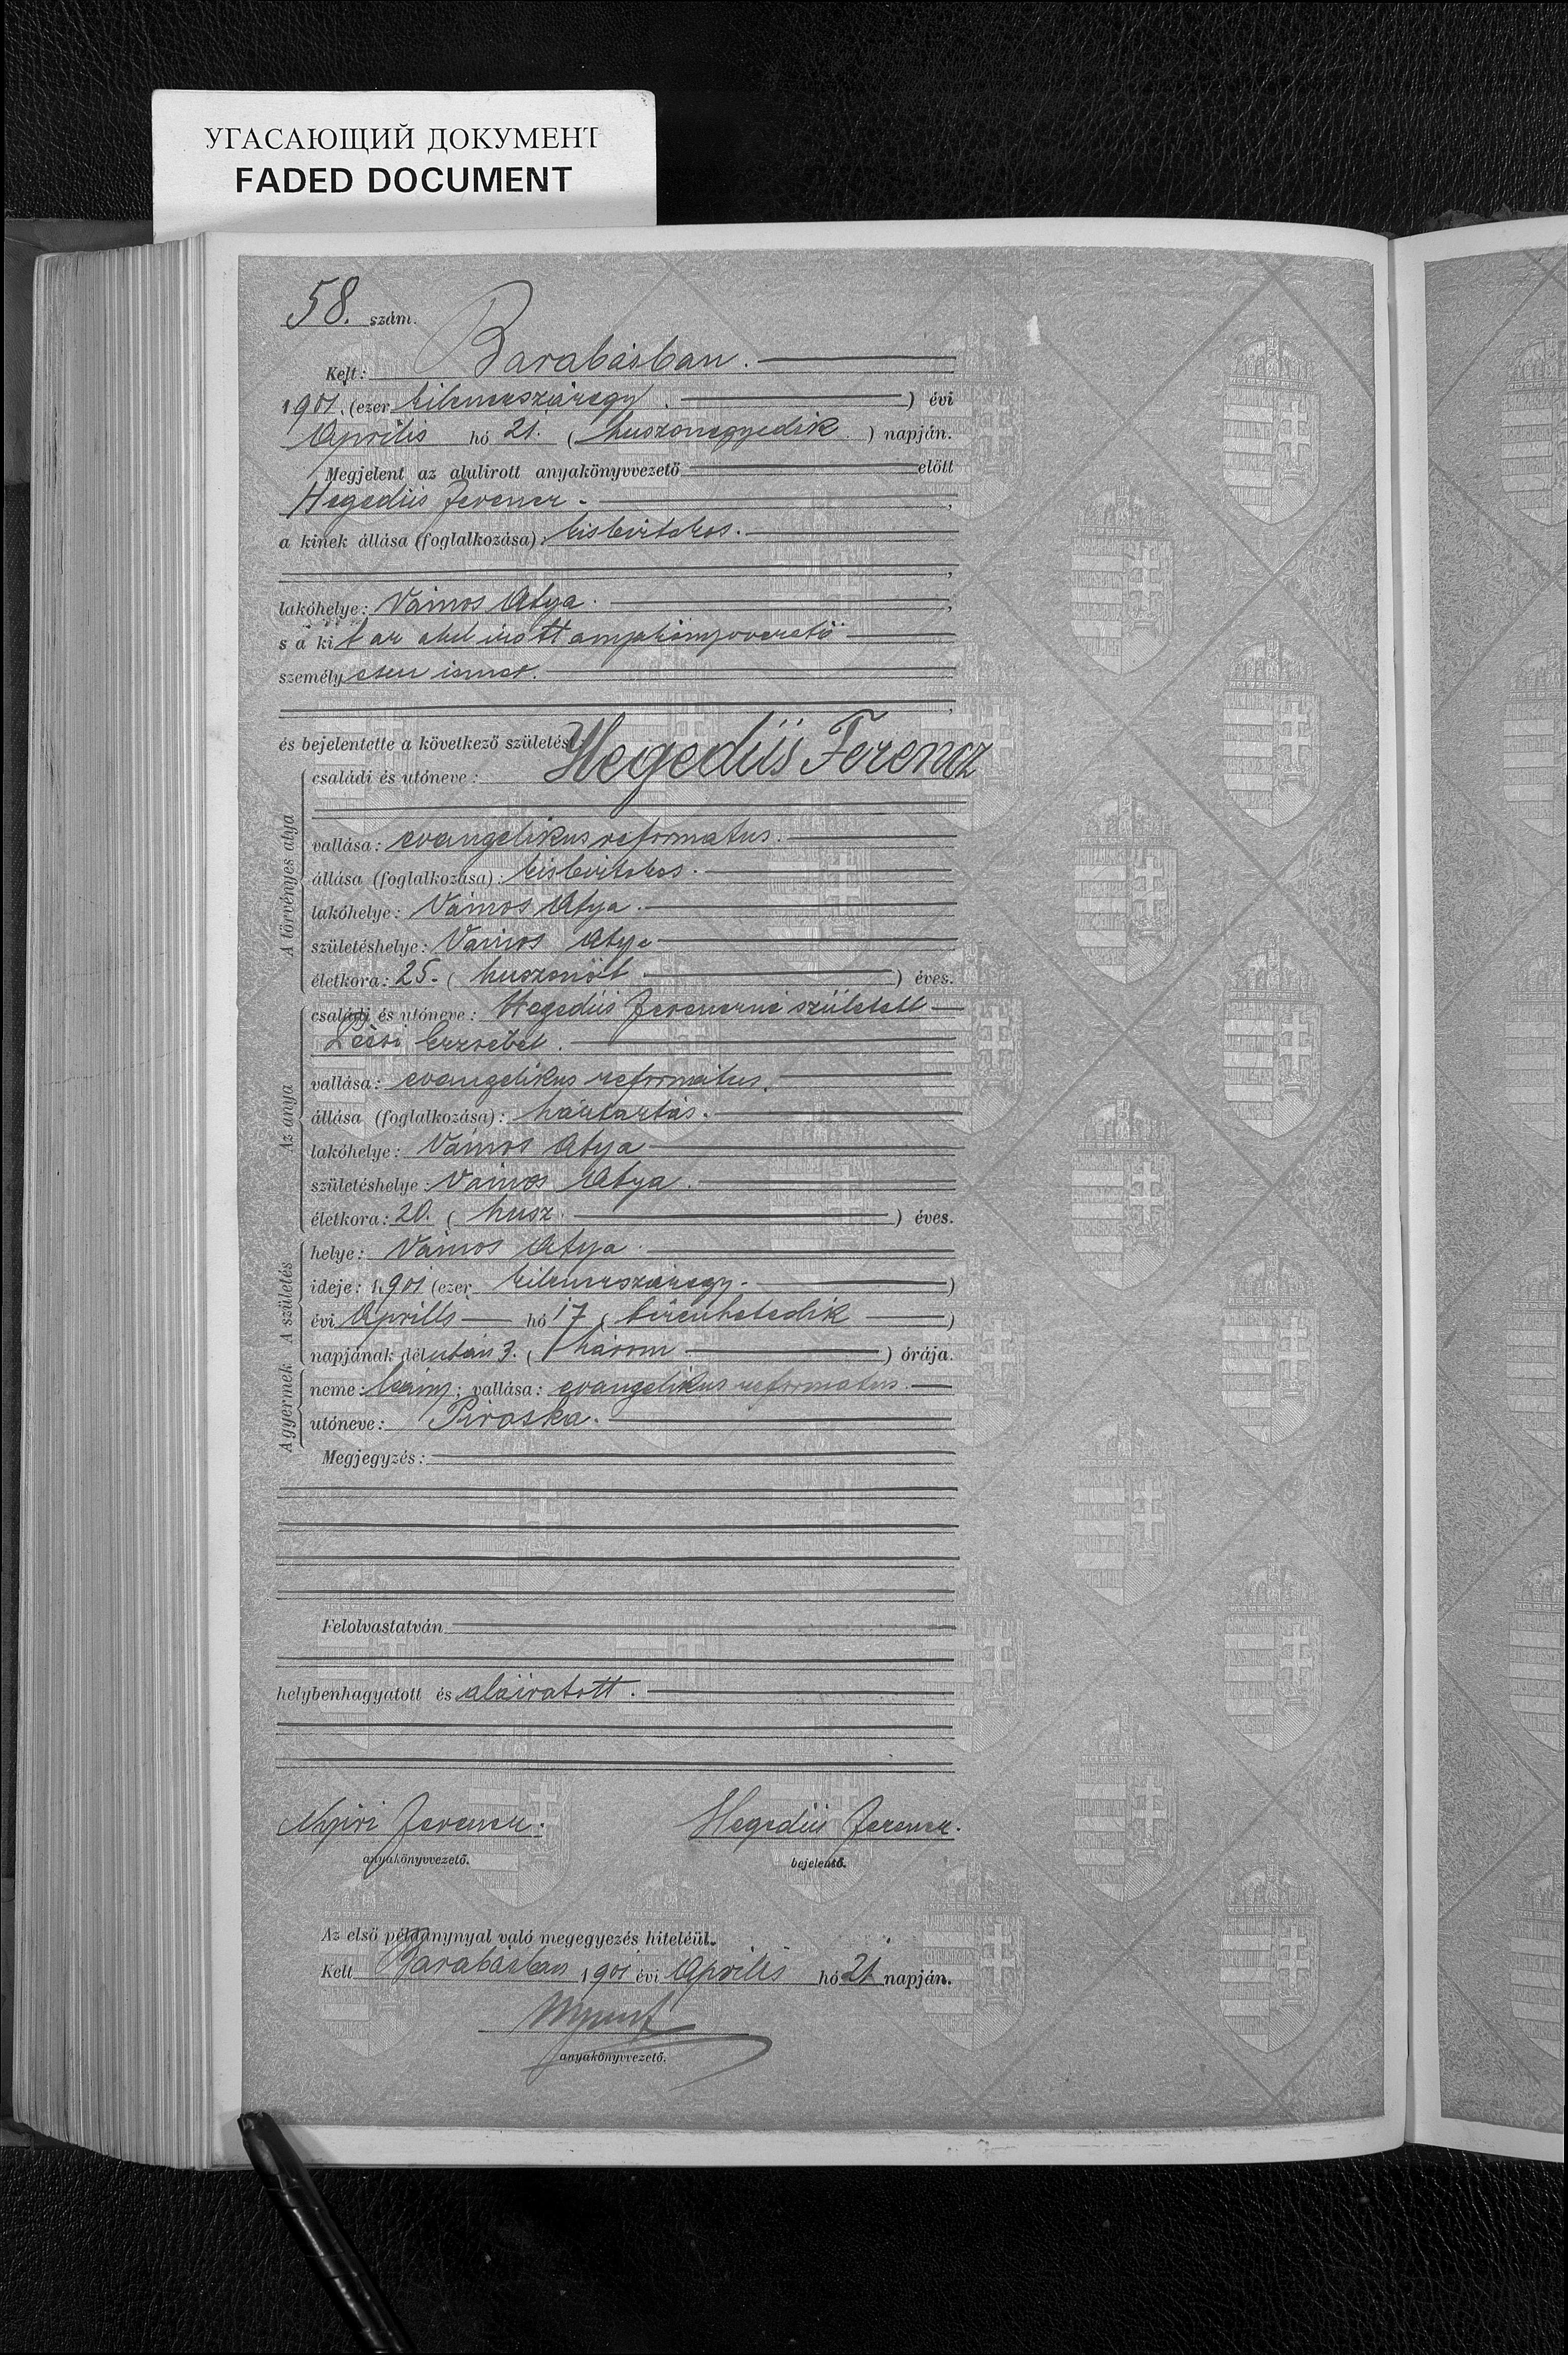 УГАСАЮЩИЙ ДОКУМЕНТ
FADED DOCUMENT
58. szám.
Kelt: Barabásban.
1901. (ezer kilenczszázegy.) évi
Április hó 21. (huszonegyedik.) napján.
Megjelent az alulirott anyakönyvvezető előtt
Hegedüs Ferencz.,
a kinek állása (foglalkozása): kisbirtokos.
,
lakóhelye: Vámos Atya.,
s a kit az alul irott anyakönyvvezető
személyesen ismer.
,
és bejelentette a következő születést:
A törvényes atya
családi és utóneve: Hegedüs Ferencz
vallása: evangelikus reformatus.
állása (foglalkozása): kisbirtokos.
lakóhelye: Vámos Atya.
születéshelye: Vámos Atya
életkora: 25. (huszonöt) éves.
Az anya
családi és utóneve: Hegedüs Ferenczné született
Pécsi Erzsébet.
vallása: evangelikus református.
állása (foglalkozása): háztartás.
lakóhelye: Vámos Atya
születéshelye: Vámos Atya.
életkora: 20. (husz.) éves.
A születés
helye: Vámos Atya.
ideje: 1901 (ezer kilenczszázegy.)
évi Április hó 17 (tizenhetedik)
napjának délután 3. (három) órája.
A gyermek
neme: leány; vallása: evangelikus reformatus.
utóneve: Piroska.
Megjegyzés:
Felolvastatván
helybenhagyatott és aláiratott.
Nyiri Ferencz. Hegedüs Ferencz.
anyakönyvvezető. bejelentő.
Az első példánynyal való megegyezés hiteléül.
Kelt Barabásban 1901 évi Április hó 21 napján.
anyakönyvvezető.